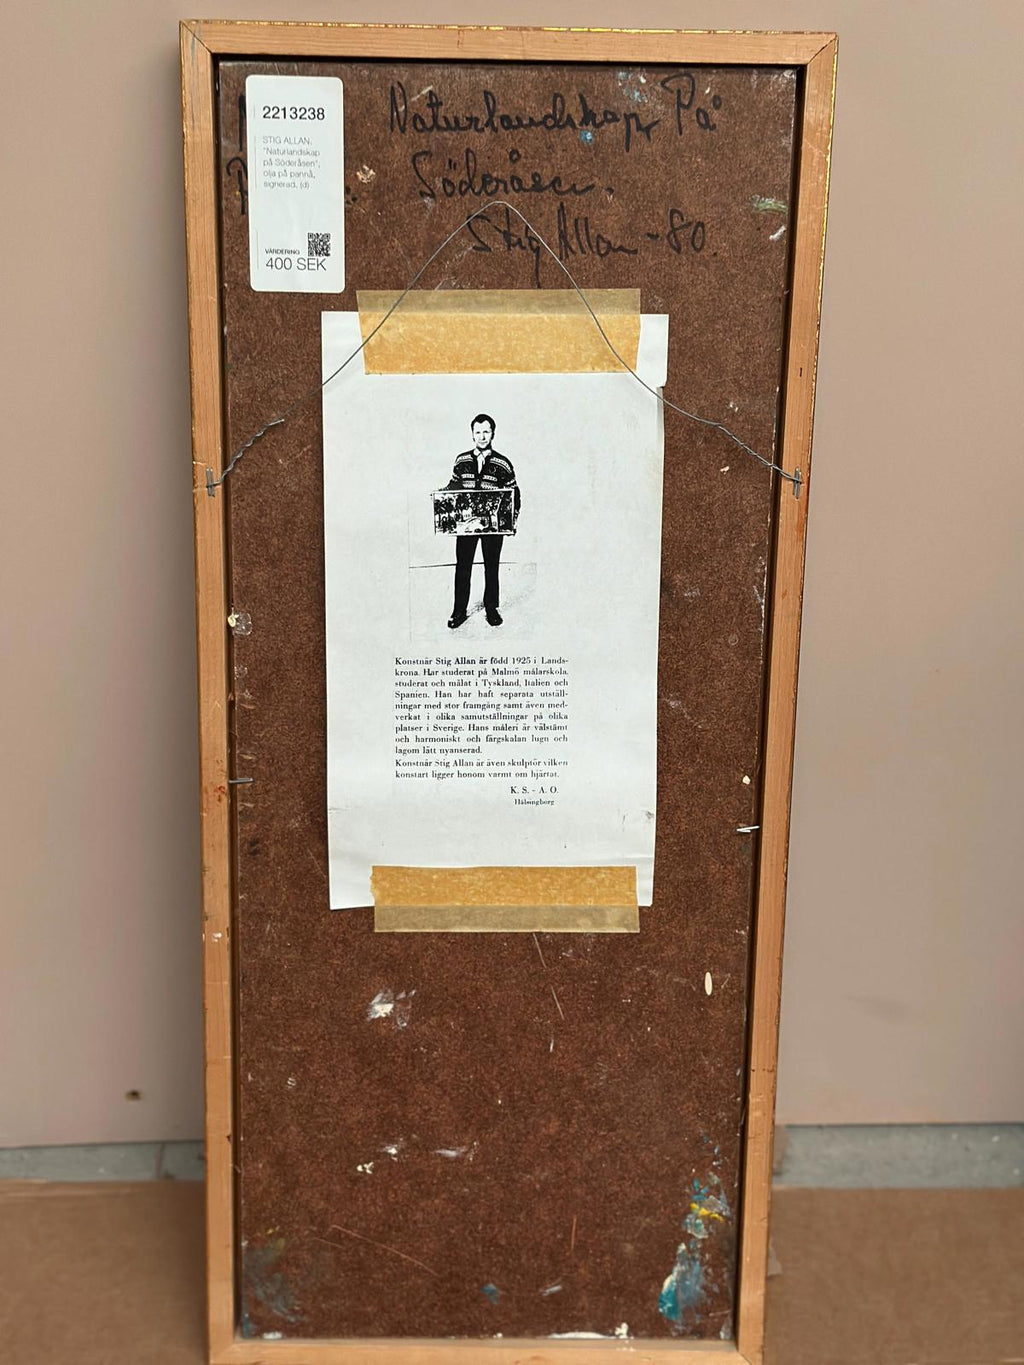 2213238
STIG ALLAN.
"Naturlandskap
på Söderåsen",
olja på pannå,
signerad, (d)
VÄRDERING
400 SEK
Naturlandskap På
Söderåsen.
Stig Allan -80.
Konstnär Stig Allan är född 1925 i Lands-
krona. Har studerat på Malmö målarskola,
studerat och målat i Tyskland, Italien och
Spanien. Han har haft separata utställ-
ningar med stor framgång samt även med-
verkat i olika samutställningar på olika
platser i Sverige. Hans måleri är välstämt
och harmoniskt och färgskalan lugn och
lagom lätt nyanserad.
Konstnär Stig Allan är även skulptör vilken
konstart ligger honom varmt om hjärtat.
K. S. - A. O.
Hälsingborg